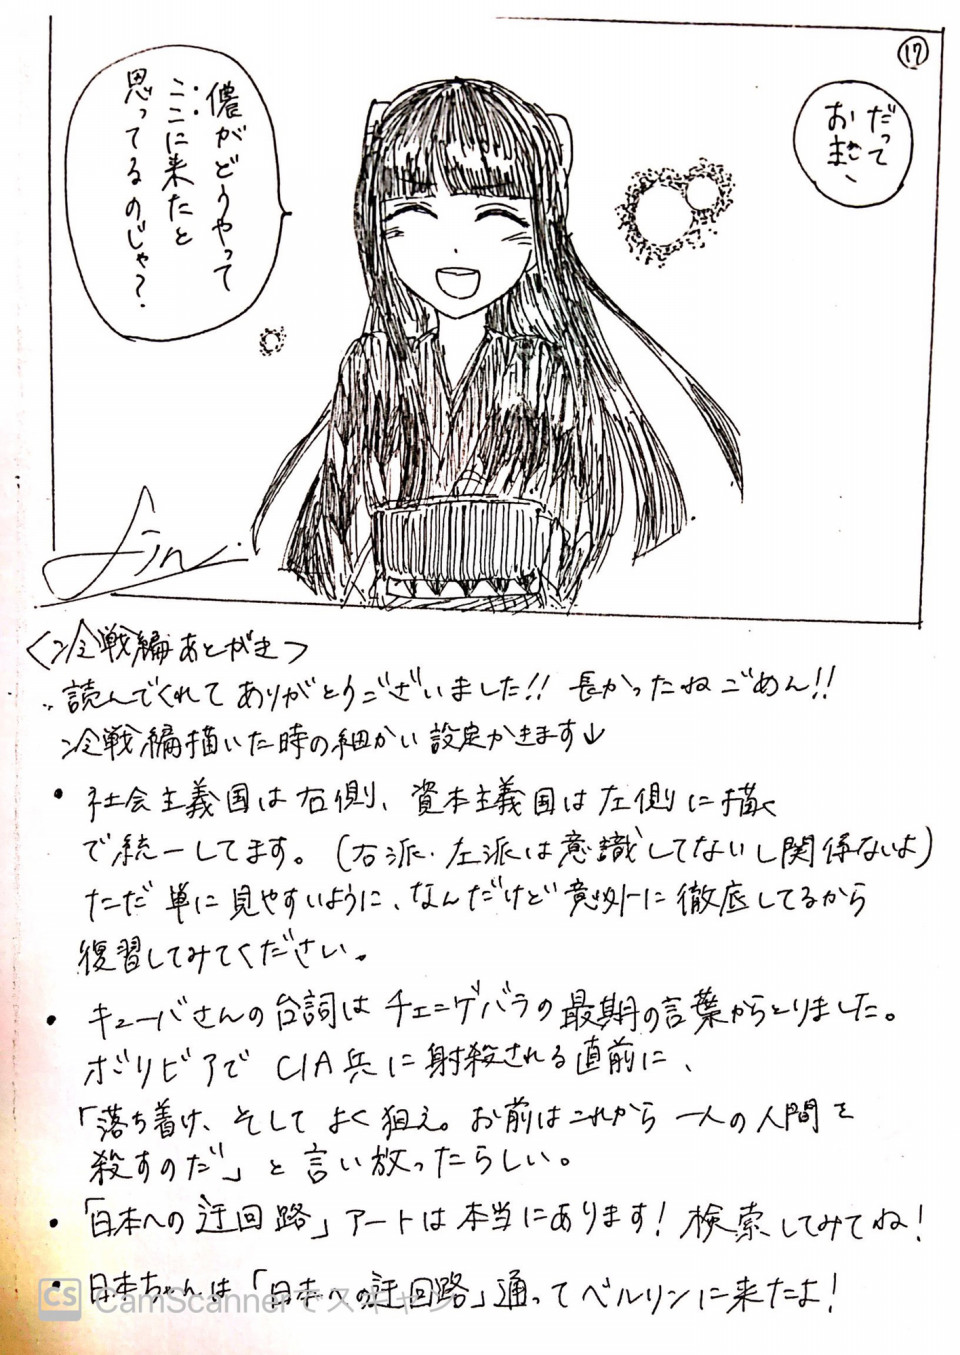 ⑰
だって
お主、
儂がどうやって
ここに来たと
思ってるのじゃ？
Jin.
<冷戦編あとがき>
読んでくれてありがとうございました!! 長かったねごめん!!
冷戦編描いた時の細かい設定かきます↓
・社会主義国は右側、資本主義国は左側に描く
で統一してます。(右派・左派は意識してないし関係ないよ)
ただ単に見やすいように、なんだけど意外に徹底してるから
復習してみてください。
・キューバさんの台詞はチェ=ゲバラの最期の言葉からとりました。
ボリビアでCIA兵に射殺される直前に、
「落ち着け、そしてよく狙え。お前はこれから一人の人間を
殺すのだ」と言い放ったらしい。
・「日本への迂回路」アートは本当にあります! 検索してみてね!
・日本ちゃんは「日本への迂回路」通ってベルリンに来たよ!
CS CamScannerでスキャン